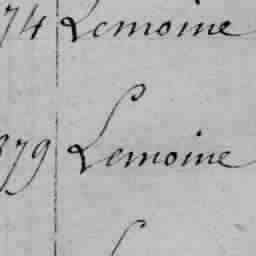 74 Lemoine
379 Lemoine